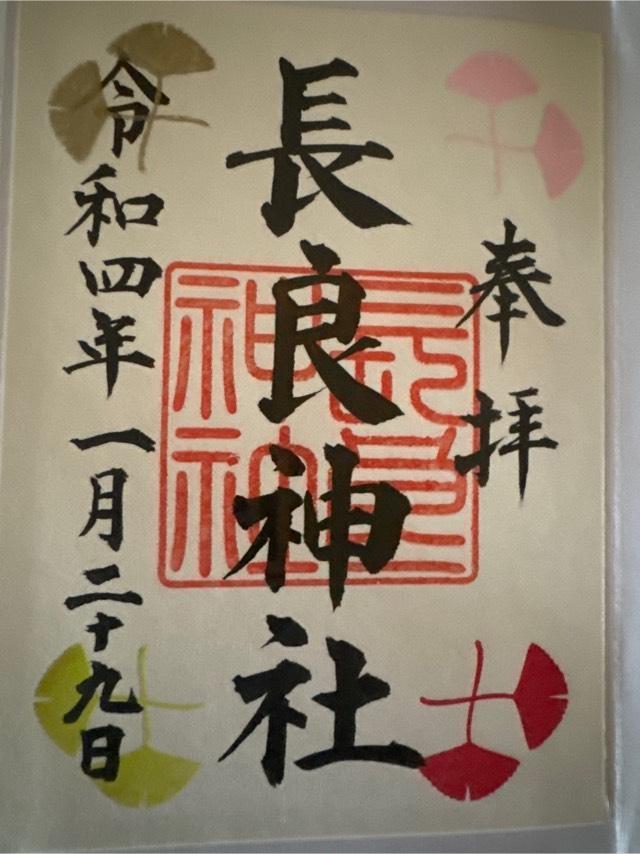 奉拝
長良神社
長良神社
令和四年一月二十九日